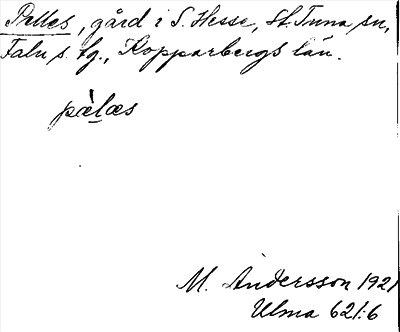 Pelles, gård i S. Hesse, St. Tuna sn,
Falu s. tg., Kopparbergs län.
pæ̀læs
M. Andersson 1921
Ulma 621:6